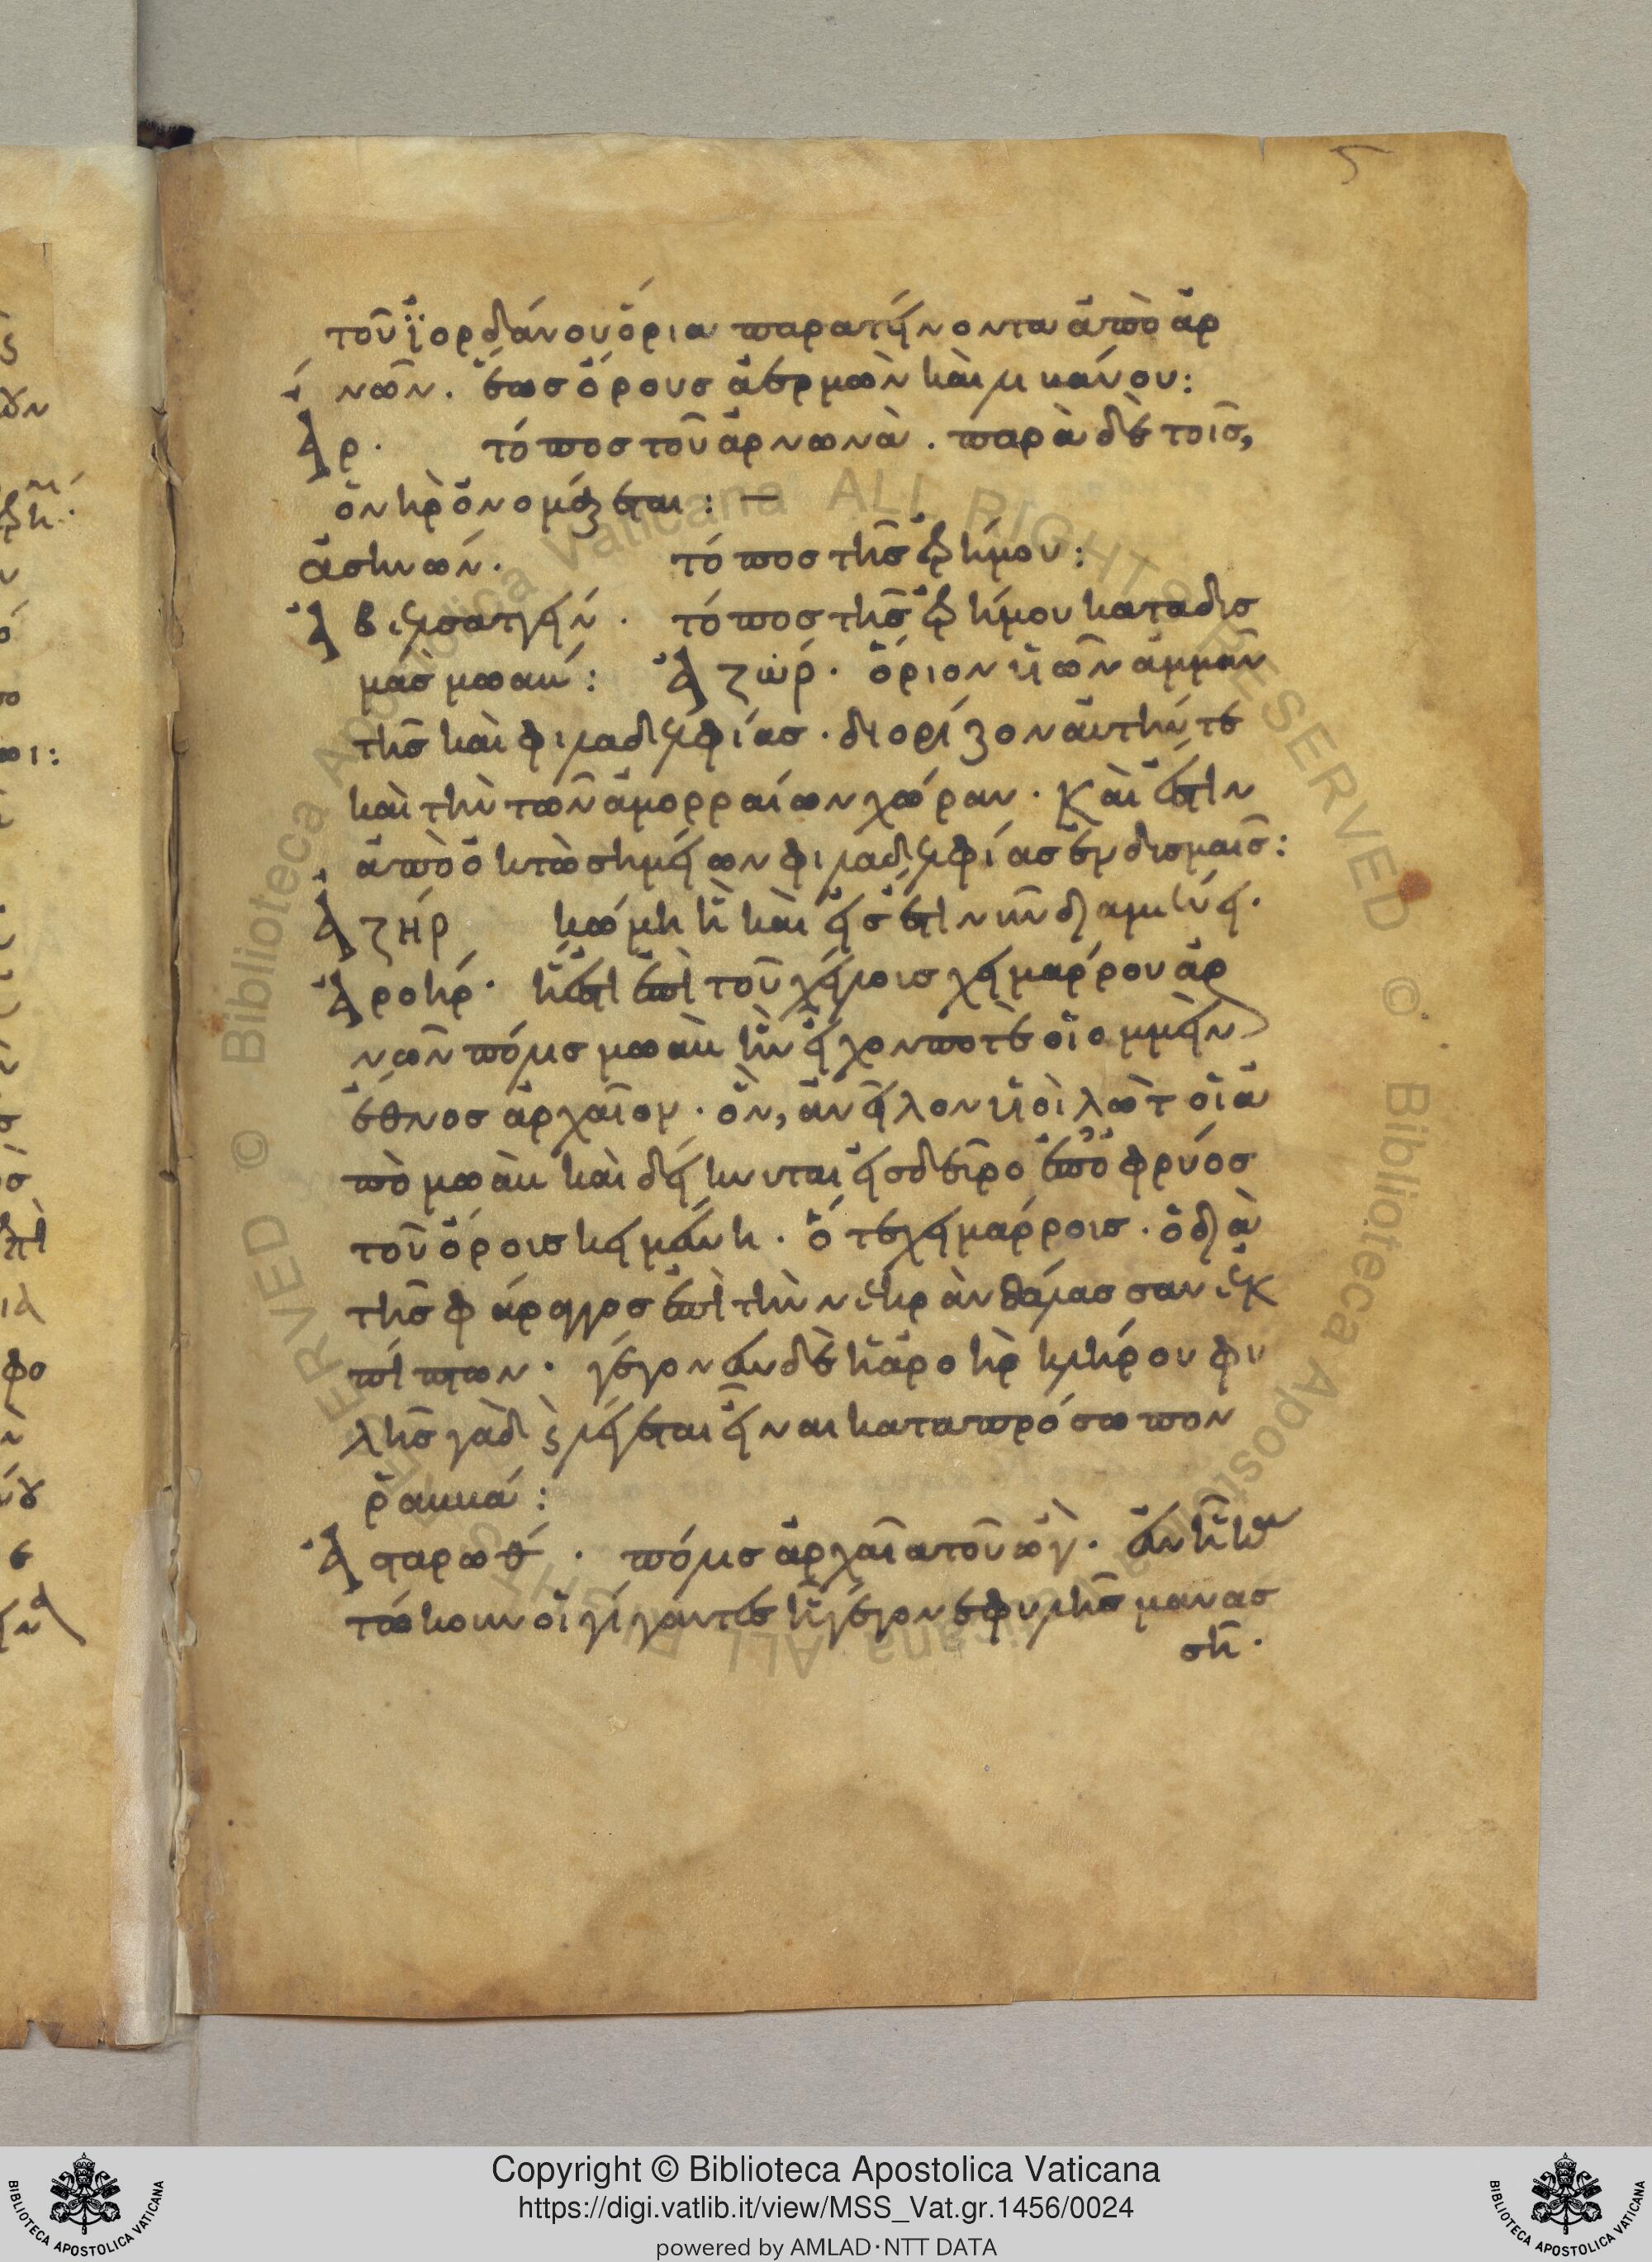 5
τοῦ ἰορδάνου ὅρια παρατείνοντα ἀπὸ ἀρ
νῶν. ἕως ὄρους ἀερμὼν καὶ λιβάνου:
Ἄρ. τόπος τοῦ ἀρνωνᾶ. παρὰ δὲ τοῖς,
ὀνὴρ ὀνομάζεται: –
ἀσηνών. τόπος τῆς ἐρήμου:
Ἀβελσαττείν. τόπος τῆς ἐρήμου κατὰ δυσ
μὰς μωάβ: Ἀζώρ. ὅριον υἱῶν ἀμμὰν
τῆς καὶ φιλαδελφίας. διορίζον αὐτήν τε
καὶ τὴν τῶν ἀμορραίων χώραν. καὶ ἔστιν
ἀπὸ ὀκτὼ σημείων φιλαδελφίας ἐν δυσμαῖς:
Ἀζὴρ κώμη ἣ καὶ εἰς ἔτι νῦν
Ἀροήρ. ἥ ἐστι ἐπὶ τοῦ χείλους χειμάρρου ἀρ
νῶν πόλις μωὰβ ἣν εἶχον ποτὲ οἱ ομμεὶν
ἔθνος ἀρχαῖον. ὃν, ἀνεῖλον υἱοὶ λὼτ οἱ ἀ
πὸ μωὰβ καὶ δείκνυται εἰς δεῦρο ἐπὸ φρύος
τοῦ ὄρους κειμένη. ὅ τε χειμάρρους. ὁ διὰ
τῆς φάραγγος ἐπὶ τὴν νεκρὰν θάλασσαν ἐκ
πίπτων. γέγονεν δὲ ἡ ἀροὴρ κλήρου φυ
λῆς γὰδ λέγεται εἶναι κατὰ πρόσωπον
ῥαββά:
Ἀσταρώθ. πόλις ἀρχαῖα τοῦ ὤγ. ἐν ᾗ κα
τώκουν οἱ γίγαντες ἣ γέγονε φυλῆς μανασ
σῆ.
Copyright © Biblioteca Apostolica Vaticana
https://digi.vatlib.it/view/MSS_Vat.gr.1456/0024
powered by AMLAD·NTT DATA
BIBLIOTECA APOSTOLICA VATICANA
BIBLIOTECA APOSTOLICA VATICANA
© Biblioteca Apostolica Vaticana ALL RIGHTS RESERVED
© Biblioteca Apostolica Vaticana ALL RIGHTS RESERVED